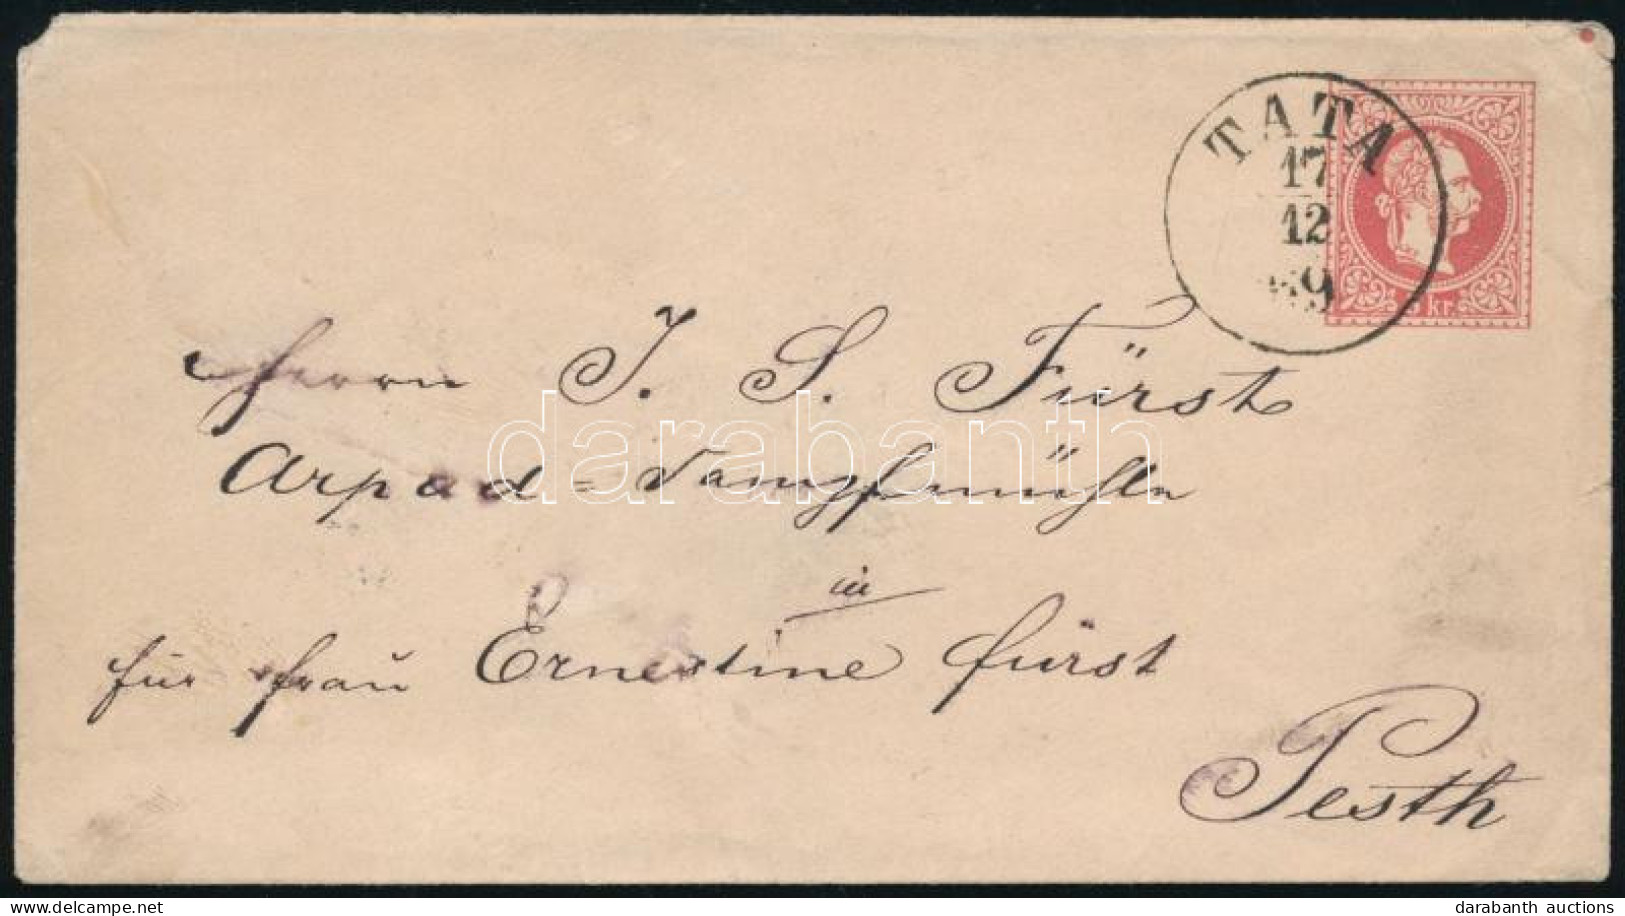 TATA
17
12
69
5 kr.
Herrn J. S. Fürst
Arpad=Dampfmühle
in
für Frau Ernestine Fürst
Pesth
darabanth
www.delcampe.net
darabanth auctions